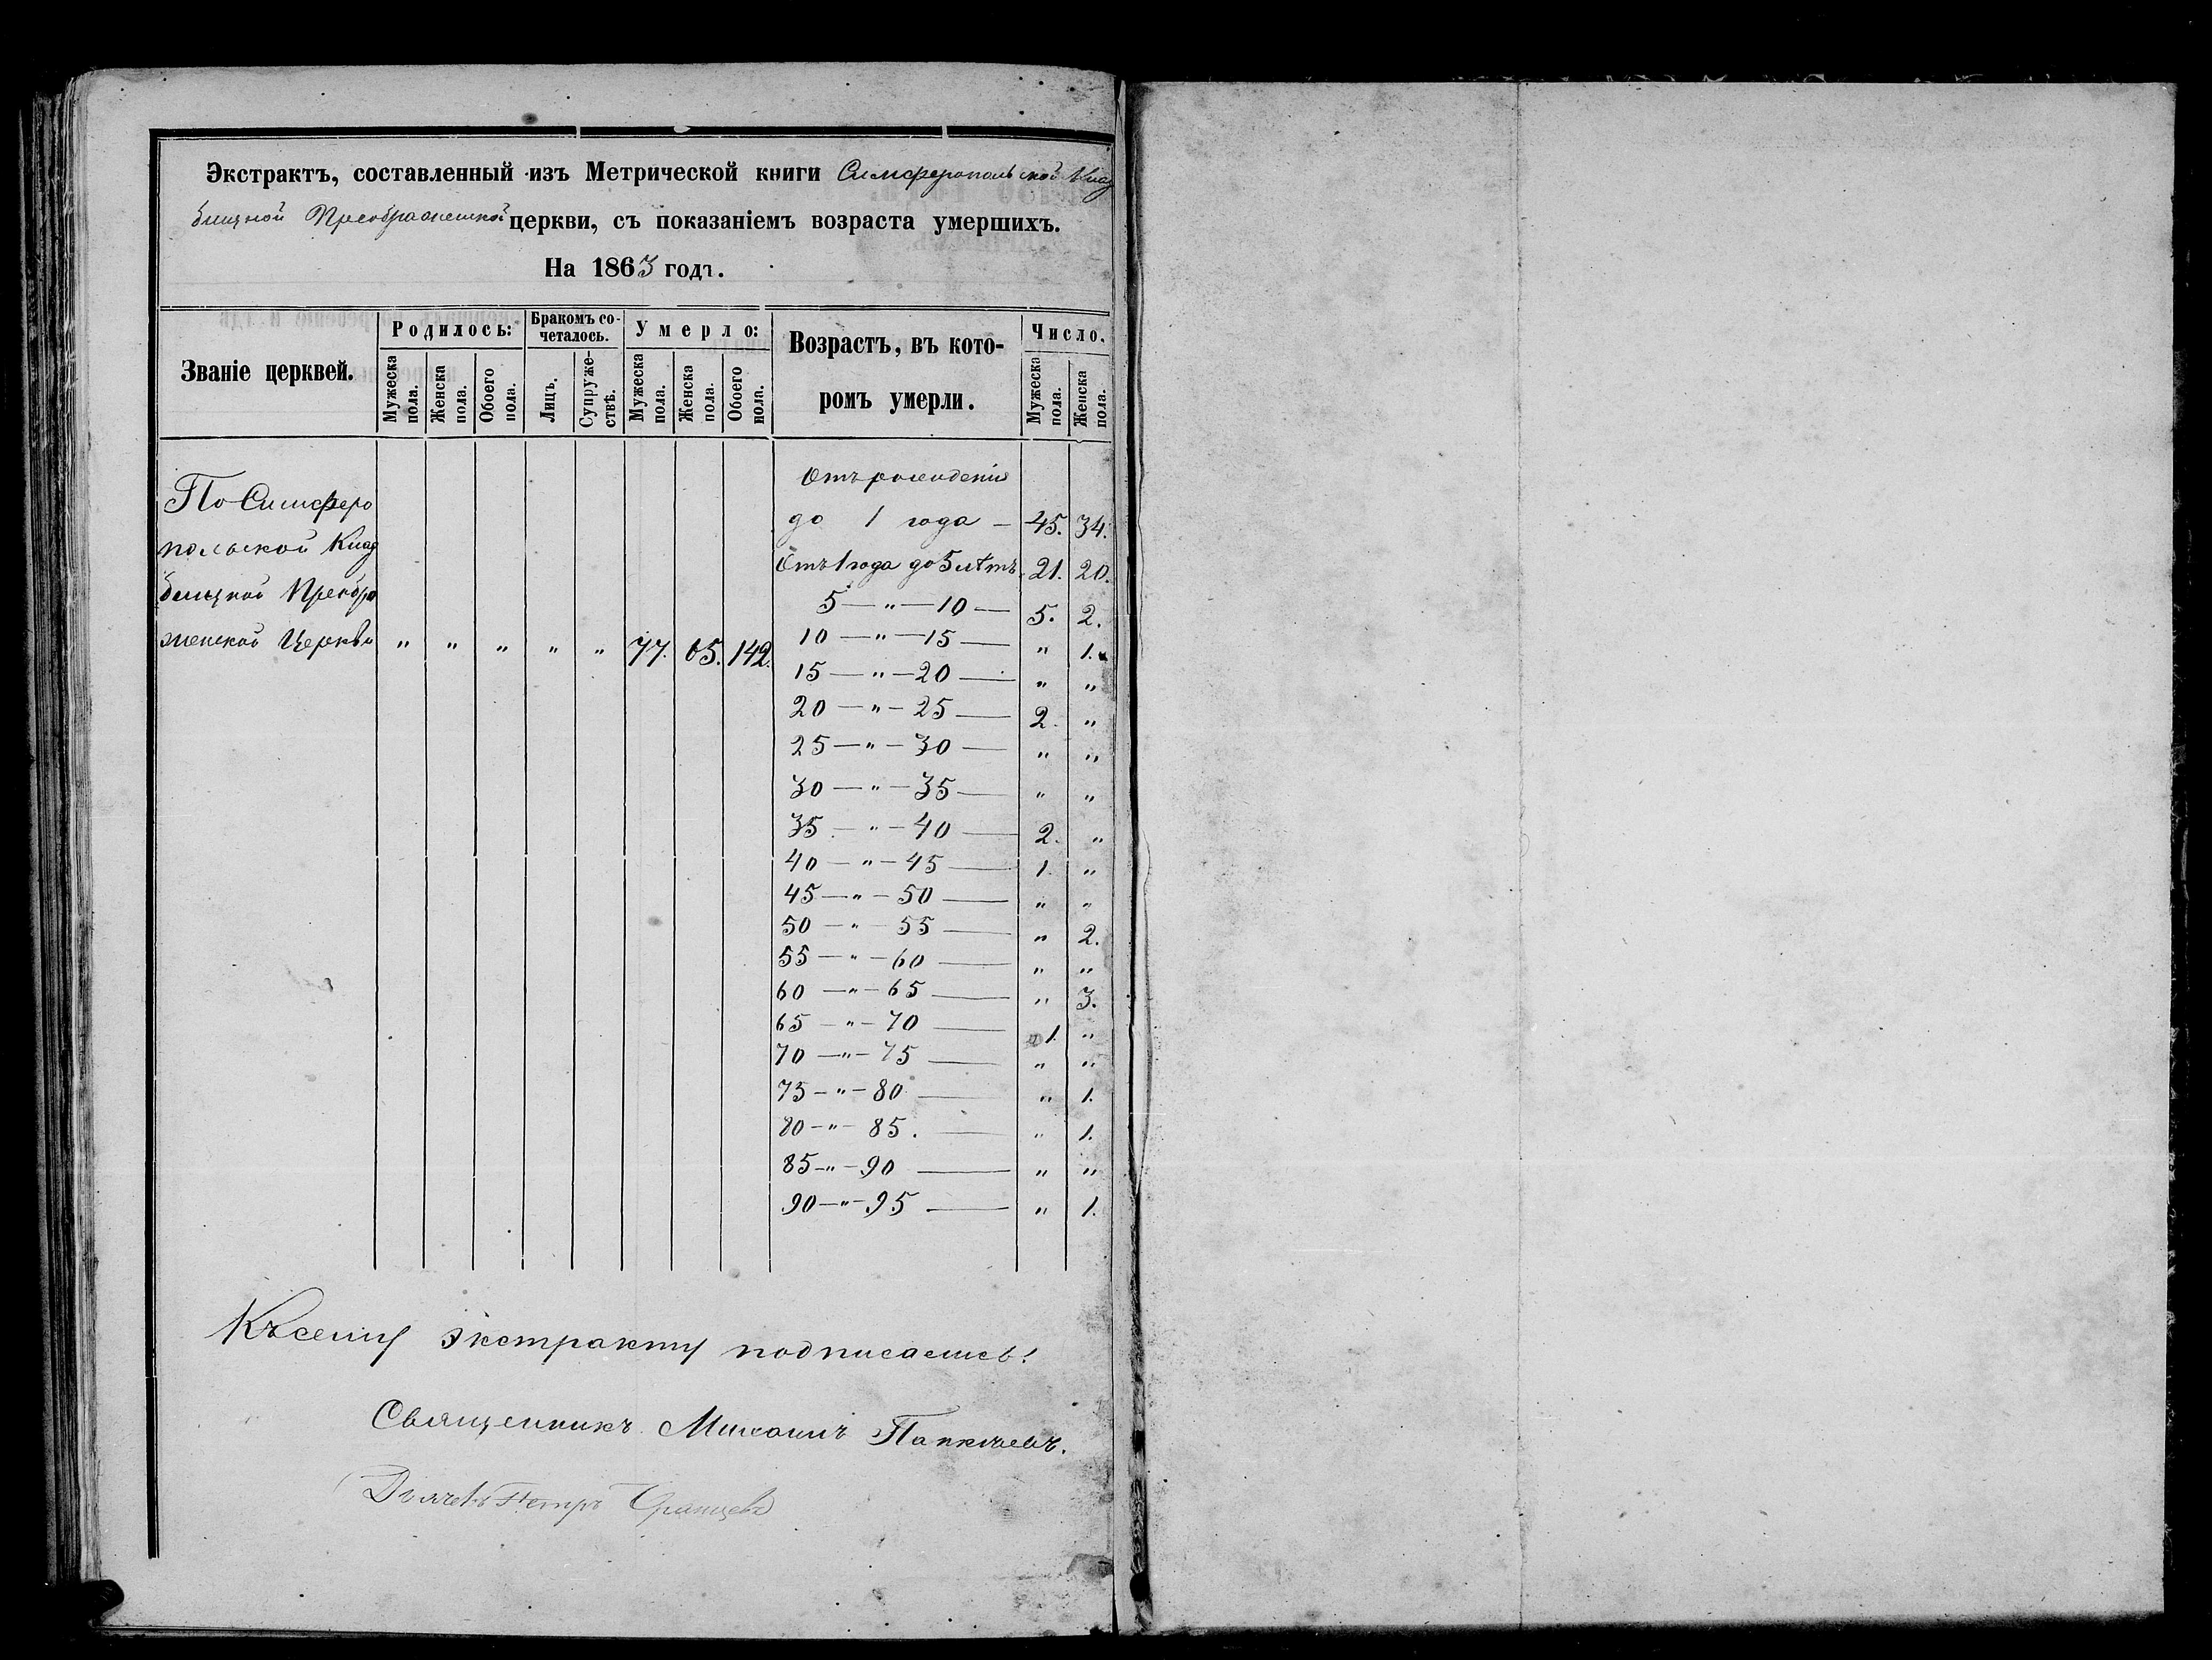 Экстрактъ, составленный изъ Метрической книги Симферопольской Клад
бищной Преображенской церкви, съ показаніемъ возраста умершихъ.
На 1863 годъ.
Званіе церквей. Родилось: Бракомъ со- Умерло: Возрастъ, въ кото- Число.
четалось.
Мужеска пола. Женска пола. Обоего пола. Лицъ. Супруже- ствѣ. Мужеска пола. Женска пола. Обоего пола. ромъ умерли. Мужеска пола. Женска пола.
Отъ рожденія
По Симферо
до 1 года — 45. 34.
польской Клад
Отъ 1 года до 5 лѣтъ 21. 20.
бищной Преобра
5 — „ — 10 — 5. 2.
женской Церкви „ „ „ „ „ 77. 65. 142.
10 — „ — 15 — „ 1.
15 — „ — 20 — „ „
20 — „ — 25 — 2. „
25 — „ — 30 — „ „
30 — „ — 35 — „ „
35 — „ — 40 — 2. „
40 — „ — 45 — 1. „
45 — „ — 50 — „ „
50 — „ — 55 — „ 2.
55 — „ — 60 — „ „
60 — „ — 65 — „ 3.
65 — „ — 70 — 1. „
70 — „ — 75 — „ „
75 — „ — 80 — „ 1.
80 — „ — 85. — „ 1.
85 — „ — 90 — „ „
90 — „ — 95 — „ 1.
Къ сему экстракту подписались:
Священникъ Михаилъ
Дьячекъ Петръ